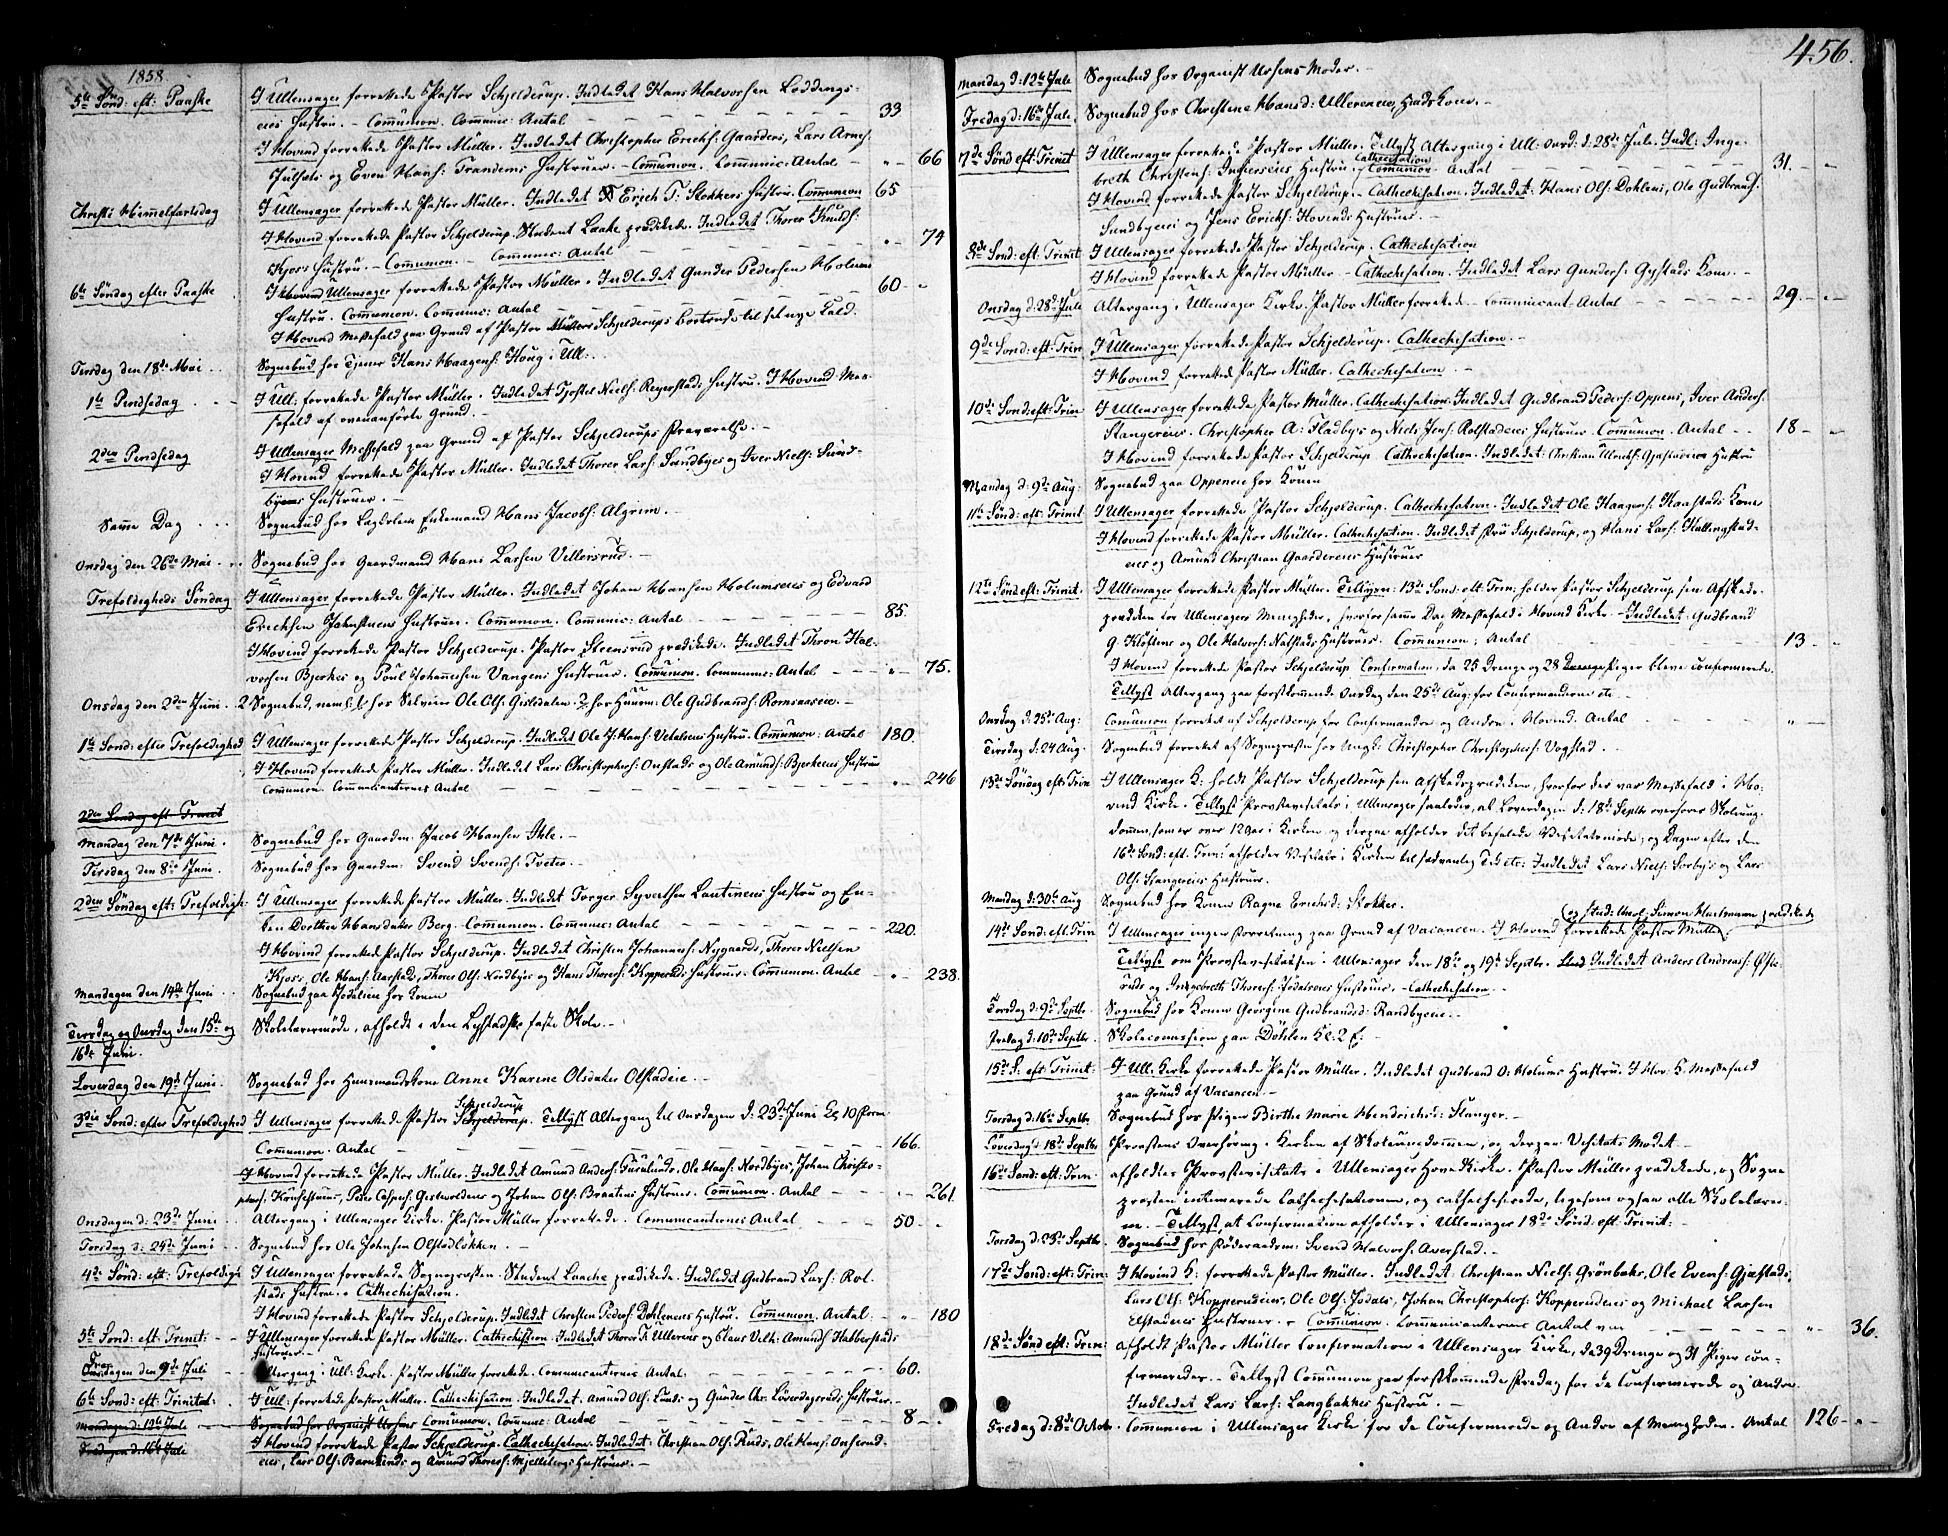 1858.
5te Sönd: eft: Paaske
I Ullensager forrettede Pastor Schjelderup. Indledet Hans Halvorsen Loddings-
eies Hustru. – Communion. Commūnic: Antal 33
I Hovind forrettede Pastor Müller. Indledet Christopher Erichs: Gaarders, Lars Arnes:
Julsets og Even Hans: Trandems Hustruer. – Communion. Communic: Antal 66
Christi Himmelfartsdag
I Ullensager forrettede Pastor Müller. Indledet Erich T: Stokkers Hustru. Communion 65
I Hovind forrettede Pastor Schjelderup. Student Laake prædikede. Indledet Thorer Knuds:
Kjos's Hustru. – Communion. – Communic: Antal 74
6te Söndag efter Paaske
I Hovind Ullensager forrettede Pastor Müller. Indledet Gunder Pedersen Holums
Hustru. Communion. Communic: Antal 60
I Hovind Messefald paa Grund af Pastor Müllers Schjelderups Bortreise til sit nye Kald.
Tirsdag den 18de Mai
Sognebud hos Tjener Hans Haagens: Houg i Ull:
1ste Pindsedag
I Ull: forrettede Pastor Müller. Indledet Tjostel Niels: Ryerstads Hustru. I Hovind Mes-
sefald af ovenanförte Grund.
2den Pindsedag
I Ullensager Messefald paa Grund af Pastor Schjelderups Fraværelse. –
I Hovind forrettede Pastor Müller. Indledet Thorer Lars: Sundbyes og Iver Niels: Sund-
byeies Hustruer. –
Samme Dag
Sognebud hos Lægdslem Enkemand Hans Jacobs: Algrim. –
Onsdag den 26de Mai
Sognebud hos Gaardmand Hans Larsen Vellersrud. –
Trefoldigheds Söndag
I Ullensager forrettede Pastor Müller. Indledet Johan Hansen Holumseies og Edvard
Erichsen Jahrstuens Hustruer. Communion. Communic: Antal 85.
I Hovind forrettede Pastor Schjelderup. Pastor Steensrud prædikede. Indledet Thron Hal-
vorsen Bjerkes og Poul Johannesen Vangens Hustruer. Communion. Communic: Antal 75.
Onsdag den 2den Juni
2 Sognebud, neml: 1) hos Selveier Ole Ols: Gisledalen. 2) hos Huusm: Ole Gudbrands: Romsaaseie. –
1ste Sönd: efter Trefoldighed
I Ullensager forrettede Pastor Schjelderup. Indledet Ole J. Hans: Vetaleies Hustru. Communion: Antal 180.
I Hovind forrettede Pastor Müller. Indledet Lars Christophers: Onstads og Ole Amunds: Bjerkeeies Hustruer
Communion. Communicanternes Antal 246
2den Söndag eft: Trinit
Mandag den 7de Juni
Sognebud hos Gaardm: Jacob Hansen Ihle. –
Tirsdag den 8de Juni
Sognebud hos Gaardm: Svend Svends: Tveter. –
2den Söndag eft: Trefoldigh:
I Ullensager forrettede Pastor Müller. Indledet Torger Syversen Lautineies Hustru og En-
ken Dorthea Hansdatter Berg. Communion. Communic: Antal 220.
I Hovind forrettede Pastor Schjelderup. Indledet Christen Johannes: Nygaards, Thorer Nielsen
Kjos's, Ole Hans: Aarstads, Thore Ols: Nordbyes og Hans Thores: Kopperuds Hustruer. Communion. Antal 238.
Mandagen den 14de Juni
Sognebud paa Jodaleie hos Konen
Tirsdag og Onsdag den 15de og
16de Juni.
Skolelærermöde, afholdt i den Lystadske faste Skole. –
Löverdag den 19de Juni
Sognebud hos Huusmandskone Anne Karine Olsdatter Olstadeie. –
3die Sönd: efter Trefoldighed
I Ullensager forrettede Pastor Schjelderup. Tillyst Altergang til Onsdagen d. 23de Juni Kl 10 Form
Communion. Antal 166.
I Hovind forrettede Pastor Müller. Indledet Amund Anders: Furulunds, Ole Hans: Nordbyes, Johan Christo-
phers: Krusestuens, Peder Caspers: Gistvoldens og Johan Ols: Braatens Hustruer. Communion. Antal 261.
Onsdagen d. 23de Juni
Altergang i Ullensager Kirke. Pastor Müller forrettede. Communicanternes Antal 50
Torsdag d: 24de Juni
Sognebud hos Ole Johnsen Olstadløkken. –
4de Sönd: eft: Trefoldigh
I Ullensager forrettede Sognepresten. Student Laache prædikede. Indledet Gudbrand Lars: Rol-
stads Hustru. Cathechisation.
I Hovind forrettede Pastor Schjelderup. Indledet Christen Peders: Dohlenens Hustru. Communion. Antal: 180
5te Sönd: eft: Trinit:
I Ullensager forrettede Pastor Müller. Cathechisation. Indledet Thorer K: Ullereies og Claus Velh: Amunds: Halberstads
Hustruer –
Fredagen den 9de Juli
Altergang i Ull: Kirke. Pastor Müller forrettede. Communicanternes Antal 60.
6te Sönd: eft: Trinitat:
I Ull: forrettede Pastor Müller. Cathechisation. Indledet: Amund Ols: Lunds og Gunder Chr: Löverdagsruds Hustruer. –
Mandagen d: 12te Jule
Sognebud hos Organist Ursins Communion. Communic: Antal 8
Fredagen d: 16de Jule
I Hovind forrettede Pastor Schjelderup. Cathechisation. Indledet: Christian Ols: Ruds, Ole Hans: Onserud-
eies, Lars Ols: Barnkinds og Amund Thores: Mjellebergs Hustruer. –
456.
Mandag d: 12te Jule
Sognebud hos Organist Ursins Moder. –
Fredag d: 16de Jule
Sognebud hos Christine Hansd: Ullereneies, Huuskone. –
7de Sönd eft: Trinit
I Ullensager forrettede Pastor Müller. Tillyst Altergang i Ull: Onsd: d: 28de Jule. Indl: Inge-
breth Christens: Imserseies Hustru. Cathechisation Communion Antal 31.
I Hovind forrettede Pastor Schjelderup. – Cathechisation. Indledet: Hans Ols: Dohlens, Ole Gudbrands:
Sundbyeie og Jens Erichs: Hovinds Hustruer. –
8de Sönd: eft: Trinit
I Ullensager forrettede Pastor Schjelderup. Cathechisation
I Hovind forrettede Pastor Müller – Cathechisation. Indledet Lars Gunders: Gystads Kone. –
Onsdag d: 28de Jule
Altergang i Ullensager Kirke. Pastor Müller forrettede. – Communicant: Antal 29.
9de Sönd: eft: Trin
I Ullensager forrettede Pastor Schjelderup. Cathechisation. –
I Hovind forrettede Pastor Müller. Cathechisation –
10de Sönd: eft: Trin
I Ullensager forrettede Pastor Müller. Cathechisation. Indledet Gudbrand Peders: Oppens, Iver Anders:
Stangereies. Christopher A: Fladbys og Niels Jens: Rolstadeies Hustruer. Communion. Antal 18
I Hovind forrettede Pastor Schjelderup. Cathechisation. Indledet: Christian Ulrichs: Gjestadeies Hustru
Mandag d: 9de Aug:
Sognebud paa Oppeneie hos Konen
11te Sönd: eft: Trinit
I Ullensager forrettede Pastor Schjelderup. Cathechisation. Indledet Ole Haagens: Haastads Kone
I Hovind forrettede Pastor Müller. Cathechisation. Indledet Fru Schjelderup, og Hans Lars: Kullingstad-
eies og Amund Christian Gaardereies Hustruer
12te Sönd eft: Trinit.
I Ullensager forrettede Pastor Müller. Tillyst: 13de Sönd. eft: Trin: holder Pastor Schjelderup sin Afskeds-
prædiken for Ullensagers Menigheder, hvorfor samme Dag Messefald i Hovind Kirke. – Indledet: Gudbrand
G. Klöftens og Ole Halvors: Nafstads Hustruer. Communion: Antal 13
I Hovind forrettede Pastor Schjelderup Confirmation, da 25 Drenge og 28 Drenge Piger bleve confirmerede.
Tillyst Altergang paa förstkommende Onsdag den 25de Aug: for Confirmanderne etc.
Onsdag d. 25de Aug:
Communion forrettet af Schjelderup for Confirmander og Andre i Hovind. Antal
Tirsdag d: 24 Aug.
Sognebud forrettet af Sognepresten hos Ungk: Christopher Christophers: Vogstad.
13de Söndag eft: Trin
I Ullensager K: holdt Pastor Schjelderup sin Afskedsprædiken, hvorfor der var Messefald i Ho-
vind Kirke. Tillyst Provstevisitats i Ullensager saaledes, at Löverdagen d: 18de Septbr overhöres Skoleung-
dommen, som er over 12 Aar i Kirken og derpaa afholdes det befalede Visitatsmöde, og Dagen efter den
16de Sönd: eft. Trin: afholdes Visitats i Kirken til sædvanlig Tid etc: Indledet Lars Niels: Sörby's og Lars
Ols: Stangereies Hustruer.
Mandag d: 30te Aug
Sognebud hos Konen Ragne Erichsd: Stokker.
14de Sönd: eft. Trin
(og Stud: theol: Simon Hartmann prædikede
I Ullensager ingen Forretning paa Grund af Vacancen. I Hovind forrettede Pastor Müller.
Tillyst om Provstevisitatsen i Ullensager den 18de og 19de Septbr. Indledet Anders Andreas: Östé-
ruds og Ingebreth Thores: Jodaleies Hustruer. – Cathechisation. –
Torsdag d: 9de Septbr
Sognebud hos Konen Georgine Gudbrandsd: Randbyeeie. –
Fredag d: 10de Septbr
Skolecommission paa Döhlen Kl: 2 E: –
15de S. eft: Trinit:
I Ull. Kirke forrettede Pastor Müller. Indledet Gudbrand O: Holums Hustru. I Hov: K. Messefald
paa Grund af Vacancen. –
Torsdag d: 16de Septbr.
Sognebud hos Pigen Birthe Marie Hendrichsd: Stanger. –
Löverdag d. 18de Septbr
Provstens Overhöring i Kirken af Skoleungdommen, og derpaa Visitats Mödet –
16de Sönd: eft: Trin:
afholdtes Provstevisitats i Ullensager Hoved Kirke. Pastor Müller prædikede, og Sogne-
presten intimerede Cathechisationen, og cathechiserede, ligesom ogsaa alle Skolelærer-
ne. – Tillyst, at Confirmation afholdes i Ullensager 18de Sönd: eft: Trinit: –
Torsdag d: 23de Septbr.
Sognebud hos Föderaadsm: Svend Halvors: Averstad. –
17de Sönd: eft: Trin:
I Hovind K: forrettede Pastor Müller. Indledet: Christian Niels: Grönbaks, Ole Evens: Gjæstads,
Lars Ols: Kopperudeies, Ole Ols: Jodals, Johan Christophers: Kopperudeies og Michael Larsen
Elstadeies Hustruer. – Communion. Communicanternes Antal var 36.
18de Sönd eft: Trin:
afholdt Pastor Müller Confirmation i Ullensager Kirke, da 39 Drenge og 31 Piger con-
firmeredes. – Tillyst Communion paa förstkommende Fredag for de Confirmerede og Andre.
Indledet Lars Lars: Langbakkes Hustru. –
Fredag d: 8de Octob
Communion i Ullensager Kirke for de Confirmerede og Andre af Menigheden. Antal 126